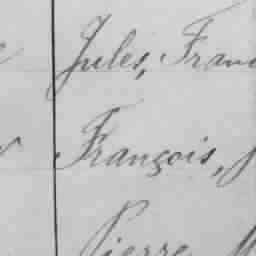 Jules, Fran
François,
Pierre